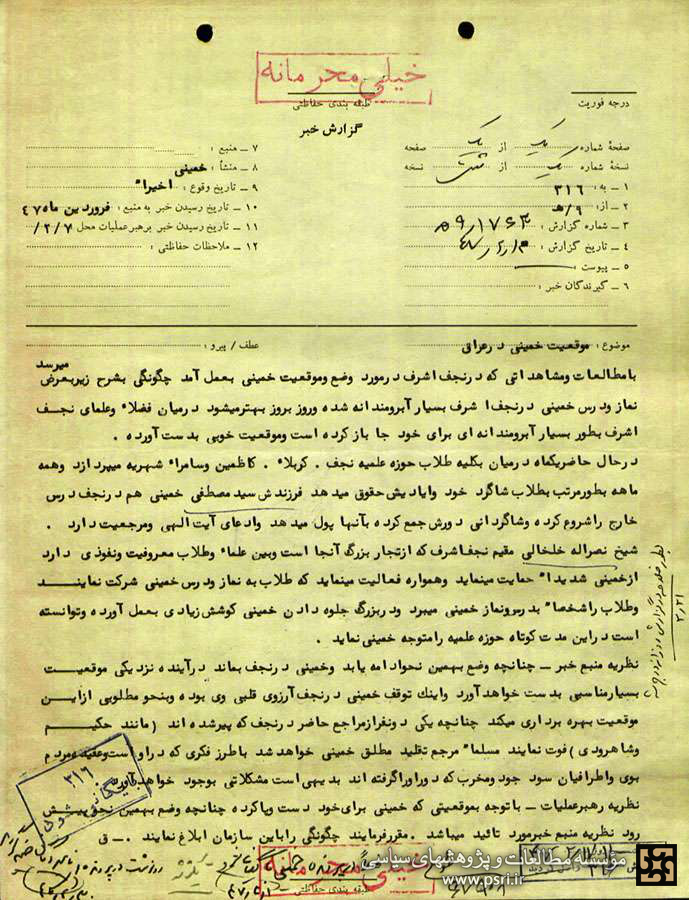 خیلی محرمانه
طبقه بندی حفاظتی
درجه فوریت
گزارش خبر
صفحهٔ شماره یک از یک صفحه
نسخهٔ شماره یک از شش نسخه
۱ ـ به : ۳۱۶
۲ ـ از : ۹/هـ
۳ ـ شماره گزارش :
۴ ـ تاریخ گزارش :
۵ ـ پیوست :
۶ ـ گیرندگان خبر :
۷ ـ منبع :
۸ ـ منشأ : خمینی
۹ ـ تاریخ وقوع : اخیراً
۱۰ ـ تاریخ رسیدن خبر به منبع : فروردین ماه ۴۷
۱۱ ـ تاریخ رسیدن خبر برهبر عملیات محل ۲/۷/
۱۲ ـ ملاحظات حفاظتی :
موضوع : موقعیت خمینی در عراق
عطف / پیرو :
بامطالعات ومشاهداتی که در نجف اشرف در مورد وضع وموقعیت خمینی بعمل آمد چگونگی بشرح زیر بعرض میرسد
نماز ودرس خمینی در نجف ا شرف بسیار آبرومندانه شده وروز بروز بهتر میشود در میان فضلاء وعلمای نجف
اشرف بطور بسیار آبرومندانه ای برای خود جا باز کرده است وموقعیت خوبی بدست آورده .
در حال حاضر یکماه در میان بکلیه طلاب حوزه علمیه نجف . کربلاء . کاظمین وسامراء شهریه میپردازد وهمه
ماهه بطور مرتب بطلاب شاگرد خود وایادیش حقوق میدهد فرزندش سید مصطفی خمینی هم در نجف درس
خارج را شروع کرده وشاگردانی دورش جمع کرده بآنها پول میدهد وادعای آیت الهی ومرجعیت دارد .
شیخ نصراله خلخالی مقیم نجف اشرف که از تجار بزرگ آنجا است وبین علماء وطلاب معروفیت ونفوذی دارد
از خمینی شدیداً حمایت مینماید وهمواره فعالیت مینماید که طلاب به نماز ودرس خمینی شرکت نمایند
وطلاب را شخصاً بدرس ونماز خمینی میبرد ودر بزرگ جلوه دادن خمینی کوشش زیادی بعمل آورده وتوانسته
است در این مدت کوتاه حوزه علمیه را متوجه خمینی نماید .
نظریه منبع خبر ـ چنانچه وضع بهمین نحو ادامه یابد وخمینی در نجف بماند در آینده نزدیکی موقعیت
بسیار مناسبی بدست خواهد آورد واینک توقف خمینی در نجف آرزوی قلبی وی بوده وبنحو مطلوبی از این
موقعیت بهره برداری میکند چنانچه یکی دونفر از مراجع حاضر در نجف که پیر شده اند (مانند حکیم
وشاهرودی) فوت نمایند مسلماً مرجع تقلید مطلق خمینی خواهد شد با طرز فکری که در او است وعقیده مردم
بوی واطرافیان سود جو ومخرب که دور او را گرفته اند بدیهی است مشکلاتی بوجود خواهد آورد
نظریه رهبر عملیات ـ باتوجه بموقعیتی که خمینی برای خود دست وپا کرده چنانچه وضع بهمین نحو پیش
رود نظریه منبع خبر مورد تائید میباشد . مقرر فرمایند چگونگی را باین سازمان ابلاغ نمایند . ـ ق
۳۱۶
بایگانی
خیلی محرمانه
طبقه بندی حفاظتی
مؤسسه مطالعات و پژوهشهای سیاسی
www.psri.ir